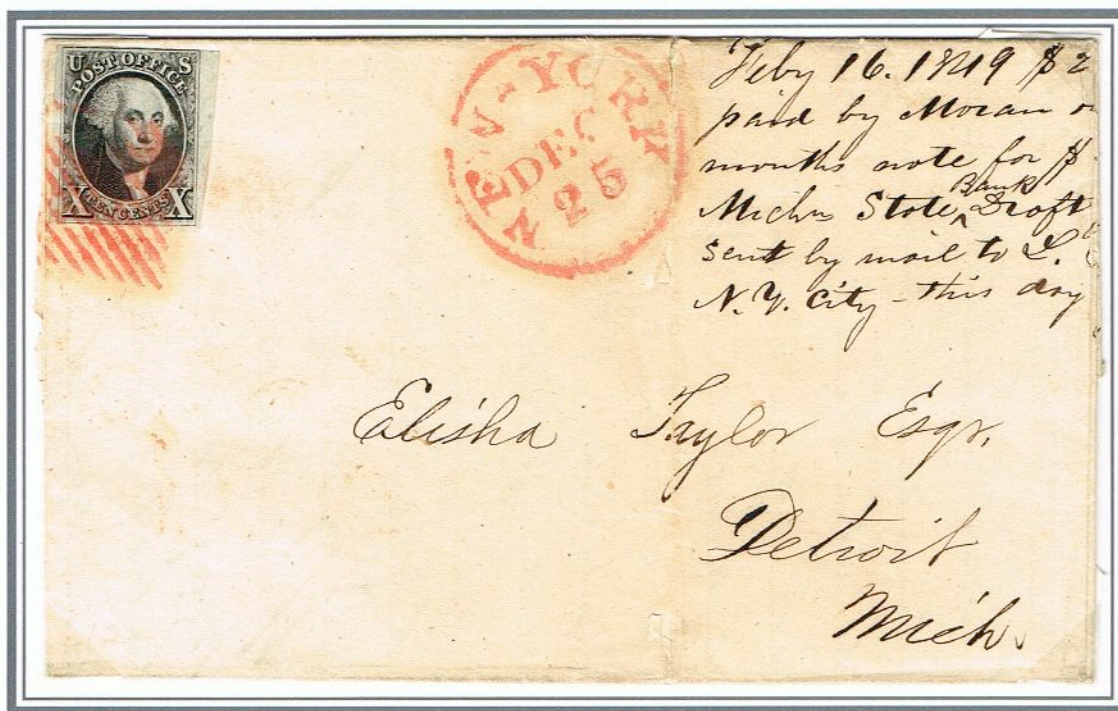 U S
POST OFFICE
X TEN CENTS X
NEW-YORK
DEC
25
Feby 16. 1849 $2
paid by Moran
months note for $
Michn State Bank Draft
sent by mail to L.
N.Y. City - this day
Elisha Taylor Esqr.
Detroit
Mich.